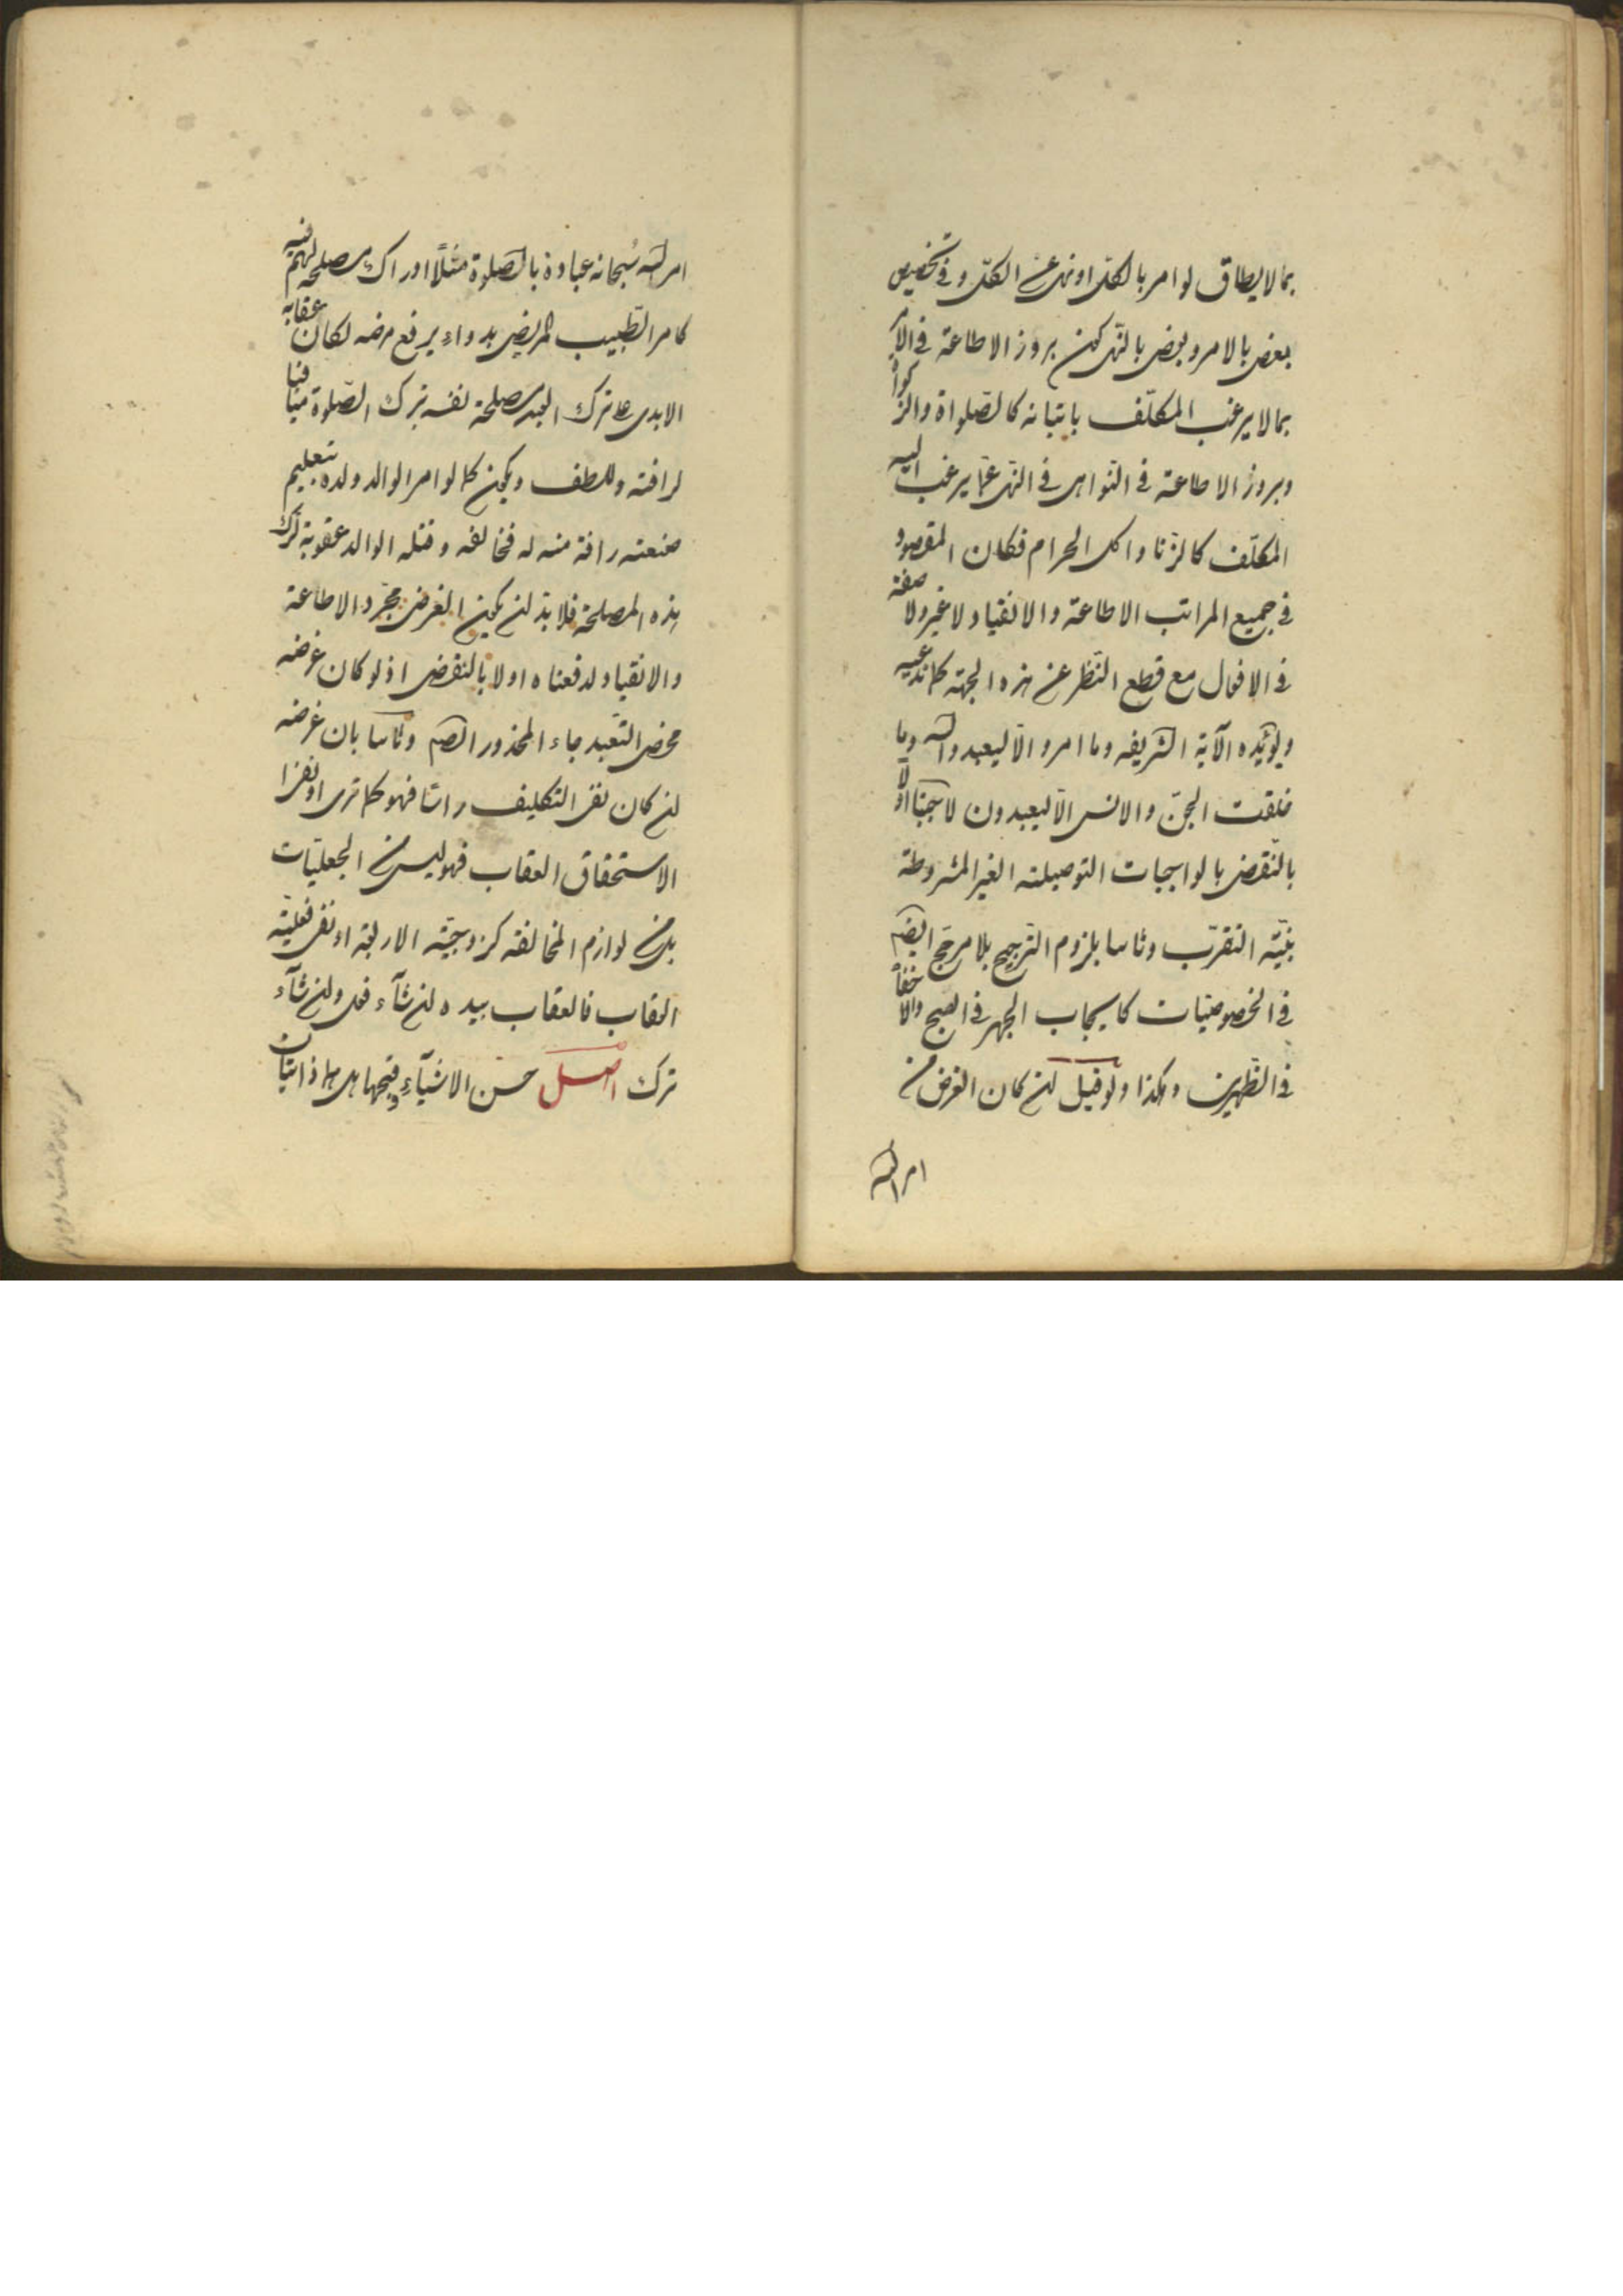 بما لا يطاق لو امر بالكل او نهى عن الكل و فى تخصيص
بعض بالامر و بعض بالنهى كمن بروز الاطاعة فى الا
بما لا يرغب المكلّف باتيانه كالصّلواة والزكواة
وبروز الاطاعة فى النّواهى فى النّهى عمّا يرغب اليه
المكلّف كالزّنا و اكل الحرام فكان المقصود
فى جميع المراتب الاطاعة والانقياد لا غير ولا صفة
فى الافعال مع قطع النّظر عن هذه الجهة كما ندعيه
ويؤيّده الآية الشريفه وما امروا الّا ليعبدوا الله وما
خلقت الجنّ والانس الّا ليعبدون لا يجبنا اوّلا
بالنّقض بالواجبات التوصيلته الغير المشروطة
بنيّة التقرّب وثانيا بلزوم الترجيح بلا مرجّح ايضا
فى الخصوصيّات كايجاب الجهر فى الصبح والاخفآ
فى الظّهرين وهكذا ولو قيل ان كان الغرض من
امر الله
امر الله سُبحانه عباده بالصّلوة مثلًا ادراك مصلحة لهم فيه
كامر الطّبيب المريض بدواء يرفع مرضه لكان عقابه
الابدى على ترك العبد مصلحة نفسه بترك الصّلوة منافيا
لرافته وللطف ويكون كما لو امر الوالد ولده بتعليم
صنعته رافة منه له فخالفه وقتله الوالد عقوبة لترك
هذه المصلحة فلا بدّ ان يكون الغرض مجرّد الاطاعة
والانقياد لدفعناه اولا بالنقض اذ لو كان غرضه
محض التّعبد جاء المحذور ايضا وثانيا بان غرضه
ان كان نفى التكليف راسًا فهو كما ترى او نفى
الاستحقاق العقاب فهو ليس من الجعليّات
بل من لوازم المخالفة كزوجيّة الاربعة او نفى فعليّة
العقاب فالعقاب بيده ان شآء فعل وان شآء
ترك اصل حسن الاشيآء وقبحها هل هما ذاتيّان